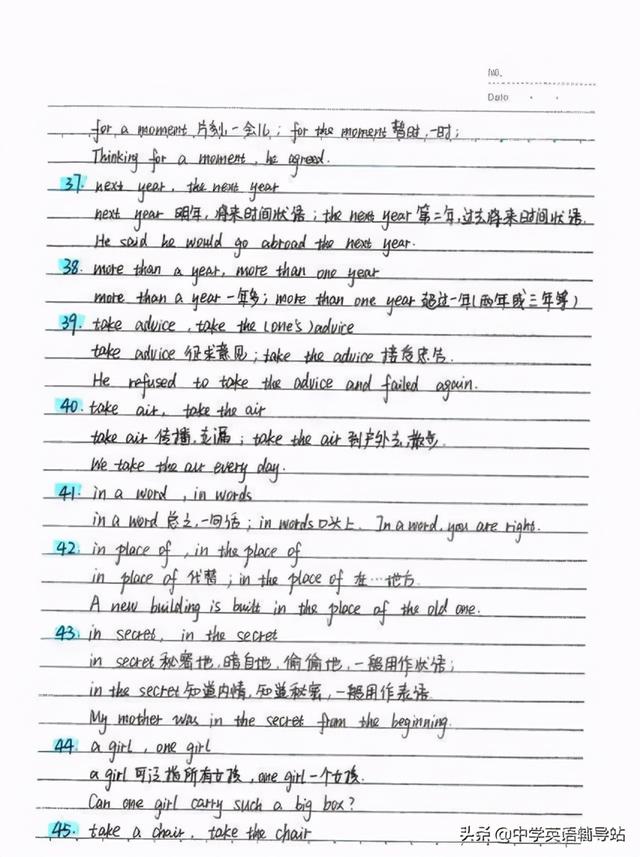 No.
Date
for a moment 片刻,一会儿; for the moment 暂时,一时;
Thinking for a moment, he agreed.
37. next year, the next year
next year 明年,将来时间状语; the next year 第二年,过去将来时间状语.
He said he would go abroad the next year.
38. more than a year, more than one year
more than a year 一年多; more than one year 超过一年(两年或三年等)
39. take advice, take the (one's) advice
take advice 征求意见; take the advice 接受忠告.
He refused to take the advice and failed again.
40. take air, take the air
take air 传播,走漏; take the air 到户外去,散步.
We take the air every day.
41. in a word, in words
in a word 总之,一句话; in words 口头上. In a word, you are right.
42. in place of, in the place of
in place of 代替; in the place of 在…地方.
A new building is built in the place of the old one.
43. in secret, in the secret
in secret 秘密地,暗自地,偷偷地,一般用作状语;
in the secret 知道内情,知道秘密,一般用作表语.
My mother was in the secret from the beginning.
44. a girl, one girl
a girl 可泛指所有女孩, one girl 一个女孩.
Can one girl carry such a big box?
45. take a chair, take the chair
头条 @中学英语辅导站